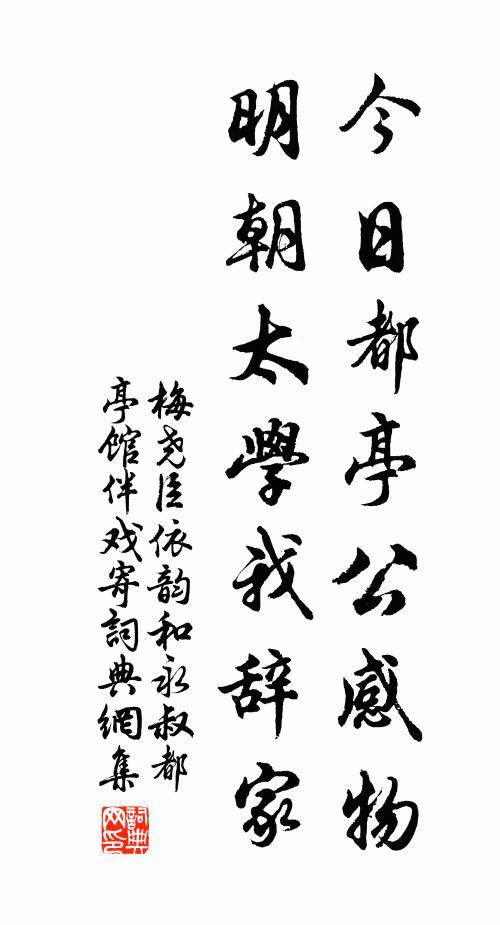 今日都亭公感物
明朝太學我辞家
梅尧臣依韵和永叔都
亭馆伴戏寄詞典網集
詞典网印